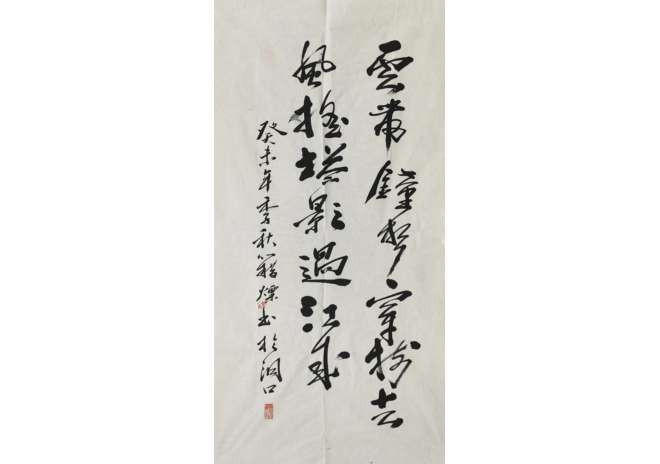 雲帶鐘聲穿樹去
風搖塔影過江來
癸未年季秋籍爍书於洞口